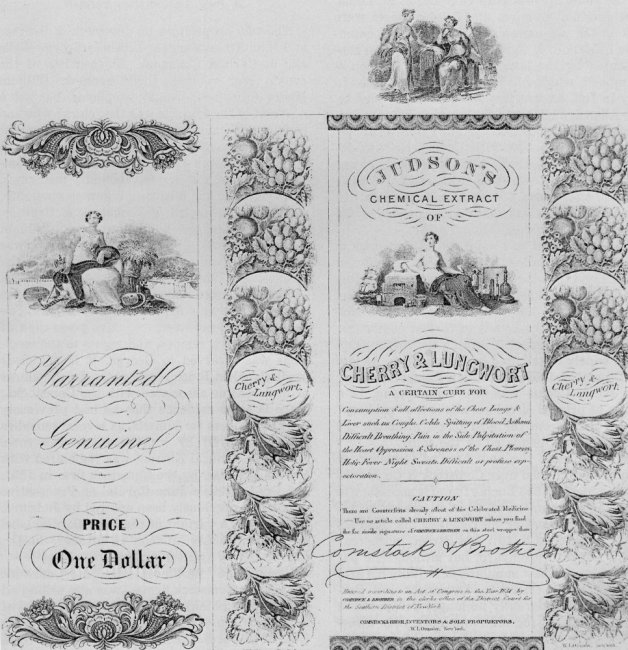 Warranted
Genuine
PRICE
One Dollar
Cherry &
Lungwort.
JUDSON'S
CHEMICAL EXTRACT
OF
CHERRY & LUNGWORT
A CERTAIN CURE FOR
Consumption & all affections of the Chest Lungs &
Liver such as Coughs Colds Spitting of Blood Asthma
Difficult Breathing Pain in the Side Palpitation of
the Heart Oppression & Soreness of the Chest Pleurisy
Hectic Fever Night Sweats Difficult or profuse exp-
ectoration.
CAUTION
There are Counterfeits already afloat of this Celebrated Medicine
Use no article called CHERRY & LUNGWORT unless you find
the fac simile signature of COMSTOCK & BROTHER on this steel wrapper thus
Comstock & Brother
Entered according to an Act of Congress in the Year by
COMSTOCK & BROTHER in the clerks office of the District Court for
the Southern District of New York
COMSTOCK & BROR, INVENTORS & SOLE PROPRIETORS,
New York.
Cherry &
Lungwort.